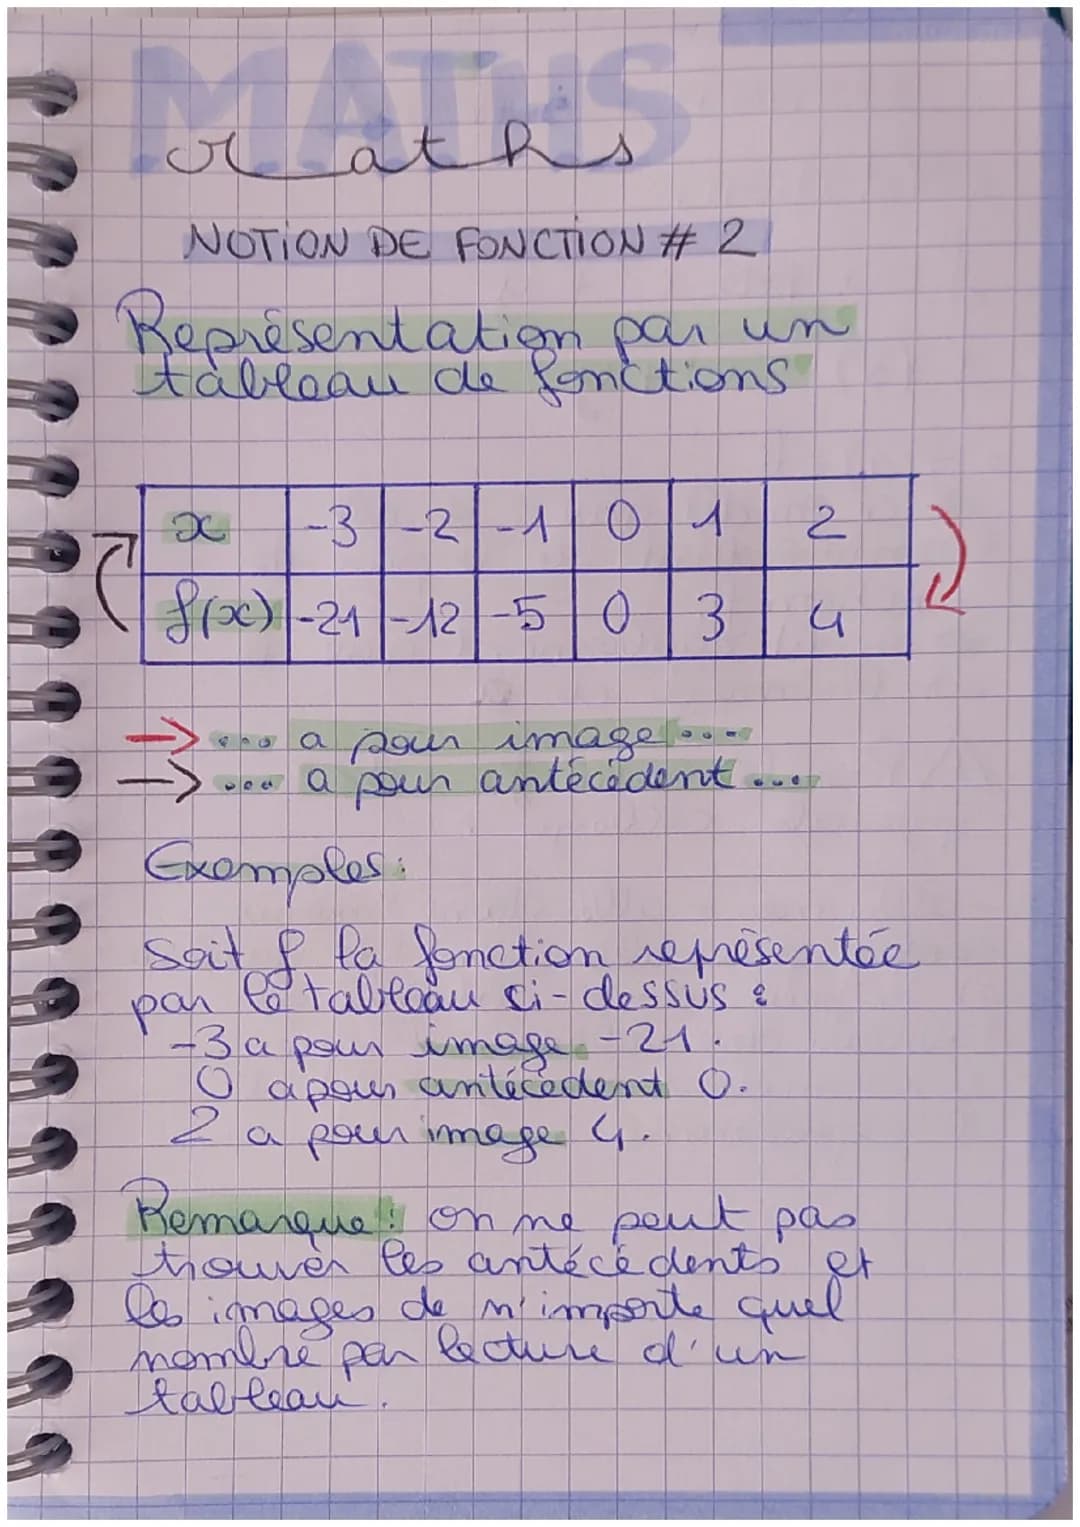 MATHS
Maths
NOTION DE FONCTION # 2
Représentation par un
tableau de fonctions
x -3 -2 -1 0 1 2
f(x) -21 -12 -5 0 3 4
→ ... a pour image ....
→ ... a pour antécédent ...
Exemples:
Soit f la fonction représentée
par le tableau ci-dessus :
-3 a pour image -21.
0 a pour antécédent 0.
2 a pour image 4.
Remarque : on ne peut pas
trouver les antécédents et
les images de n'importe quel
nombre par lecture d'un
tableau.